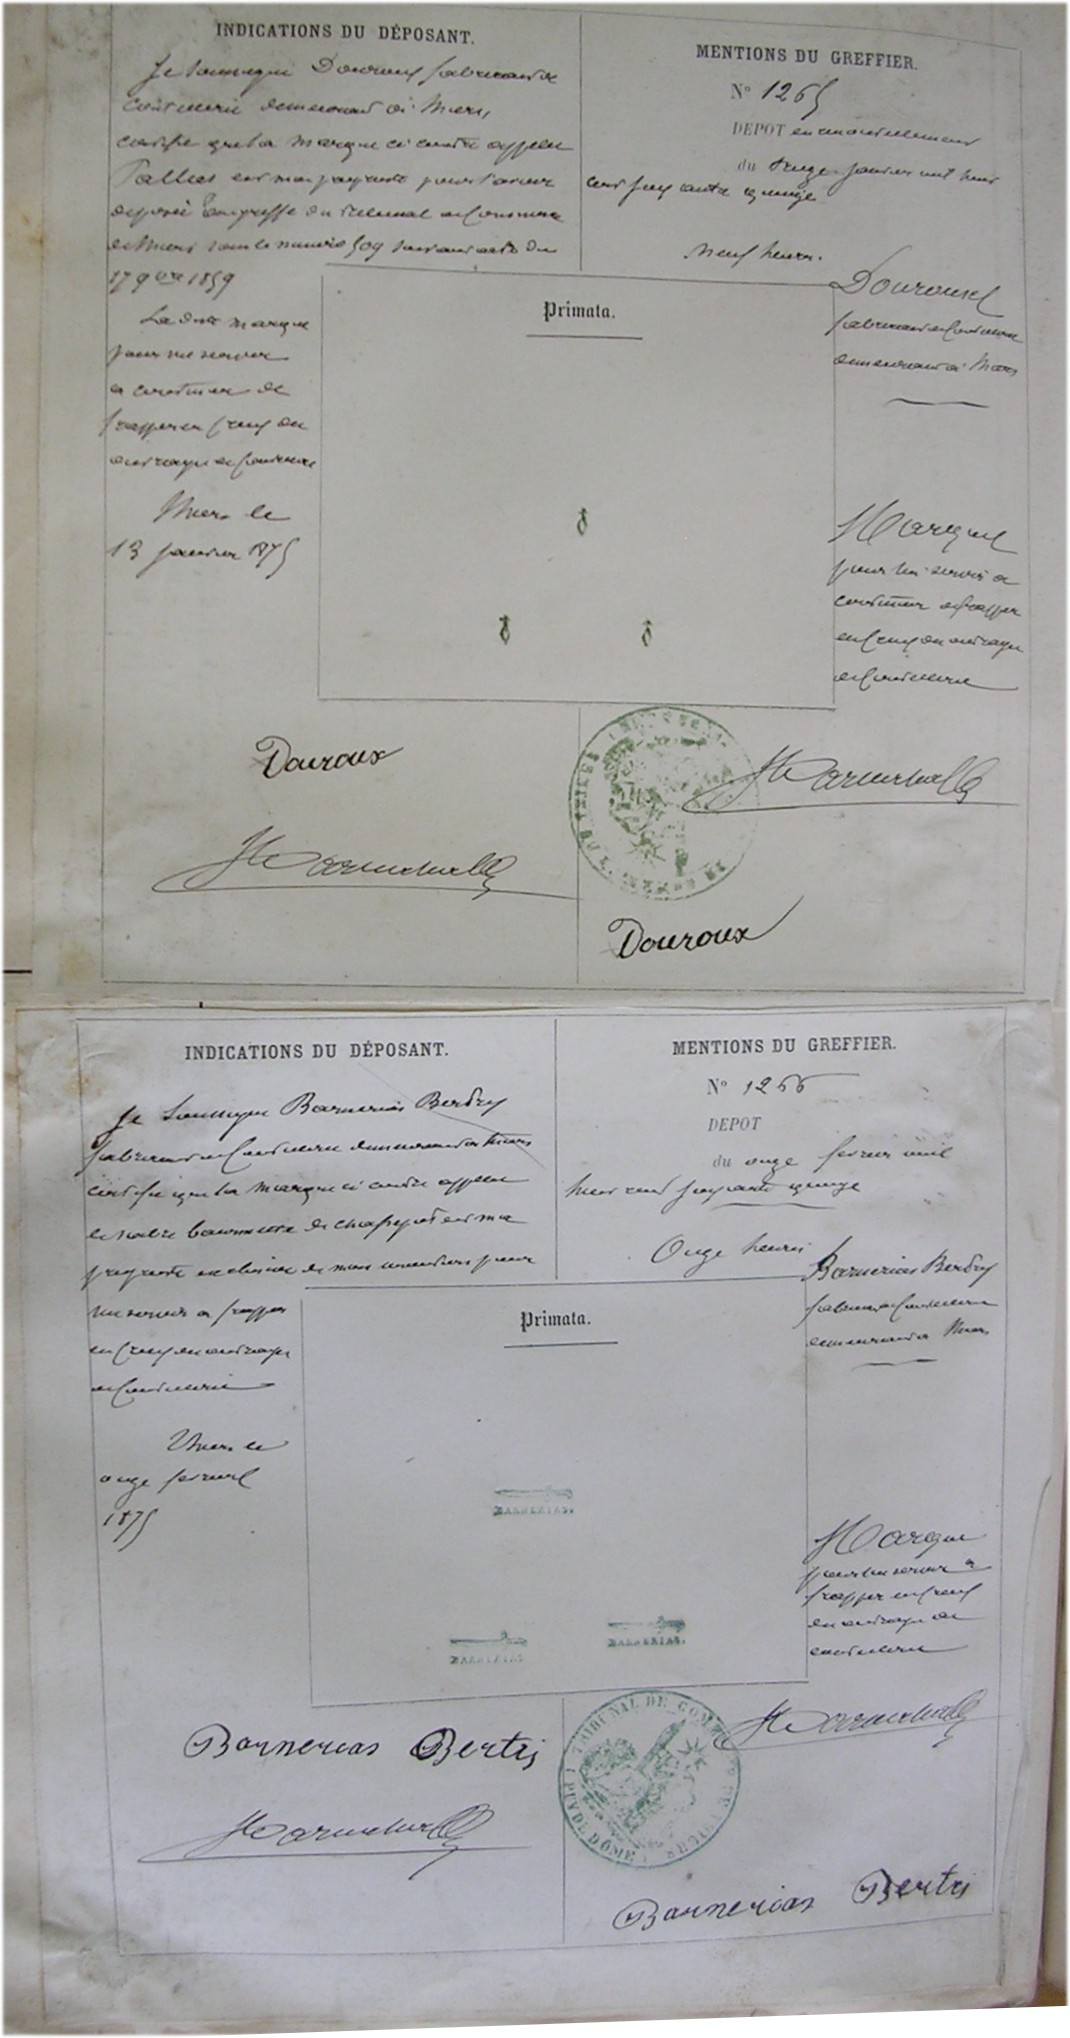 INDICATIONS DU DÉPOSANT.
Je soussigné Douroux fabricant de
coutellerie demeurant à Thiers,
certifie que la marque ci contre appelée
est ma propriété pour l'avoir
déposée au greffe du tribunal de Commerce
de Thiers sous le numéro 509 suivant acte du
17 9bre 1859
La dite marque
pour me servir
à continuer de
frapper en creux des
ouvrages de Coutellerie
Thiers le
13 janvier 1875
MENTIONS DU GREFFIER.
N° 1265
DEPOT en renouvellement
du treize janvier mil huit
cent soixante quinze
Neuf heures.
Primata.
Douroux
fabricant de Coutellerie
demeurant à Thiers
Marque
pour lui servir à
continuer de frapper
en creux des ouvrages
de Coutellerie
Douroux
Douroux
INDICATIONS DU DÉPOSANT.
Je soussigné Barnerias Bertry
fabricant de Coutellerie demeurant à Thiers
certifie que la marque ci contre appelée
le sabre baïonnette de chassepot est ma
propriété
me servir à frapper
en creux des ouvrages
de Coutellerie
Thiers le
onze février
1875
MENTIONS DU GREFFIER.
N° 1266
DEPOT
du onze février mil
huit cent soixante quinze
Onze heures
Primata.
Barnerias Bertry
fabricant de Coutellerie
demeurant à Thiers
BARNERIAS.
BARNERIAS.
BARNERIAS.
Marque
pour lui servir à
frapper en creux
des ouvrages de
coutellerie
Barnerias Bertry
TRIBUNAL DE COMMERCE DE THIERS (PUY DE DÔME)
Barnerias Bertry